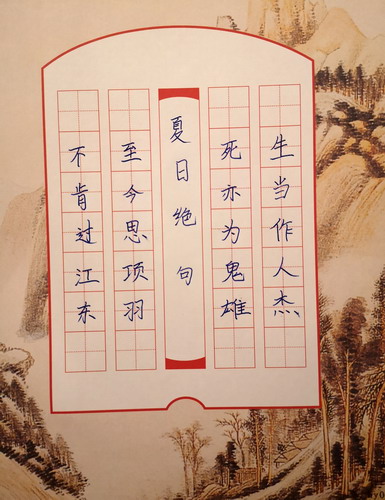 生当作人杰
死亦为鬼雄
夏日绝句
至今思项羽
不肯过江东